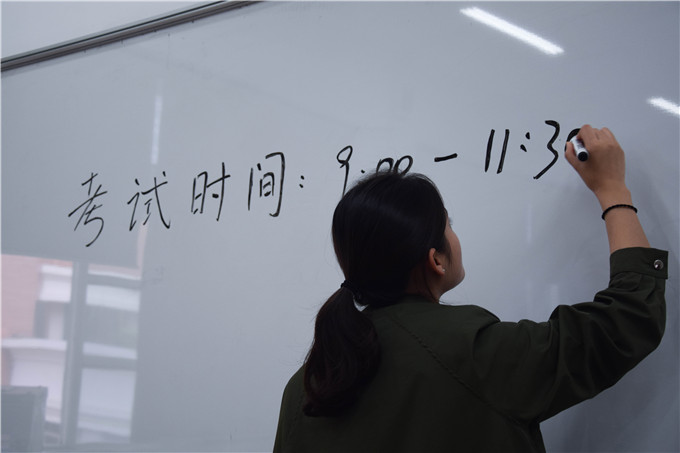 考试时间：9:00-11:30